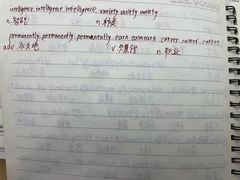 intelligence intelligence intelligence variety variety variety
n. 智慧 n. 种类
permanently permanently permanently earn earn earn career career career
adv. 永久地 v. n. 职业